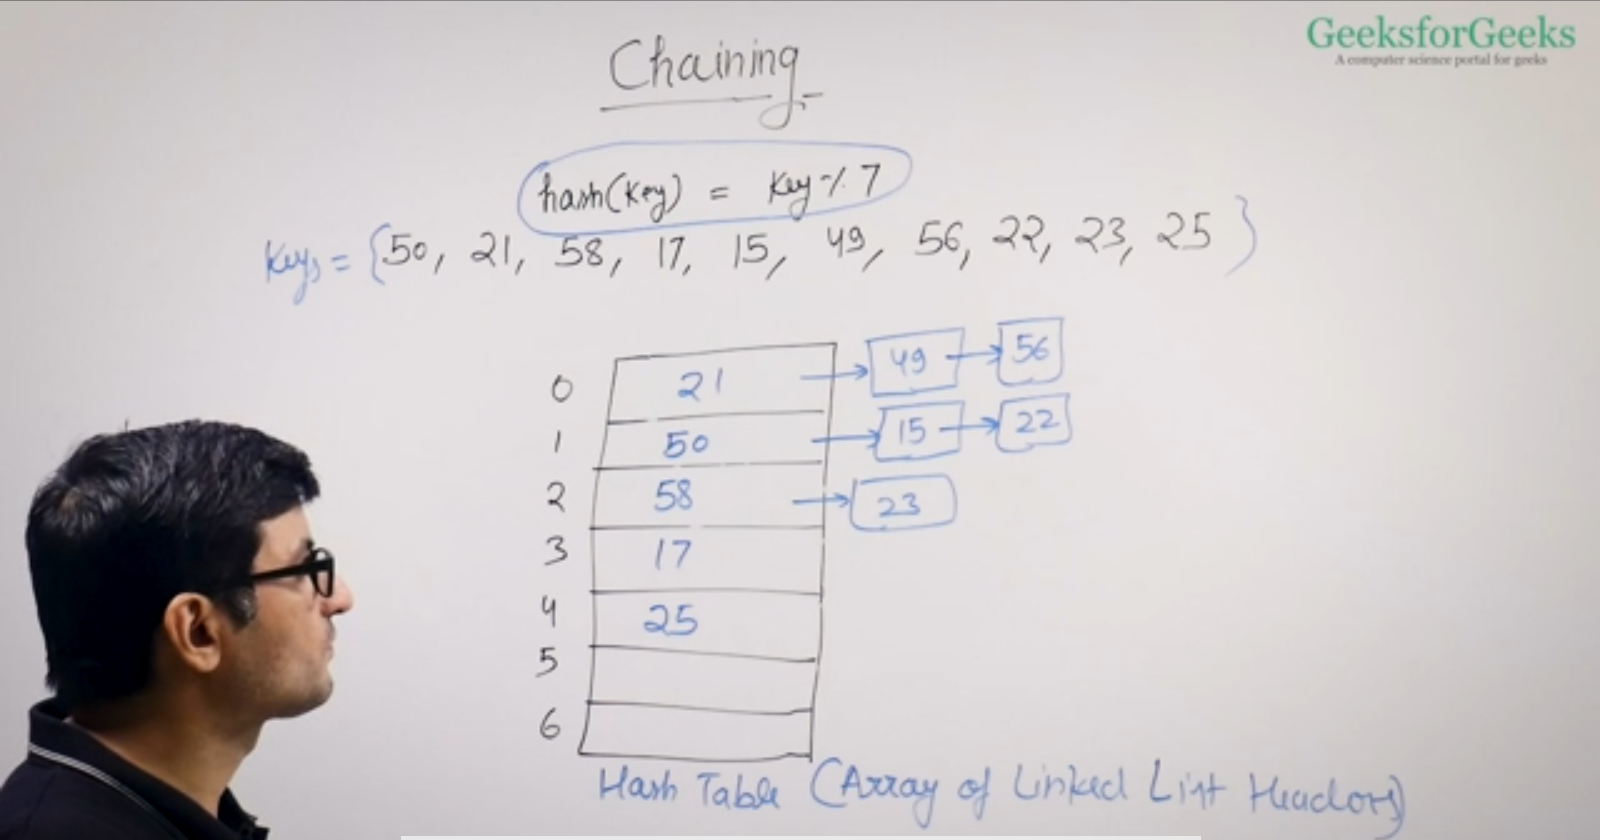 GeeksforGeeks
A computer science portal for geeks
Chaining
hash(key) = key % 7
Keys = {50, 21, 58, 17, 15, 49, 56, 22, 23, 25}
0 21 → 49 → 56
1 50 → 15 → 22
2 58 → 23
3 17
4 25
5
6
Hash Table (Array of Linked List Headers)